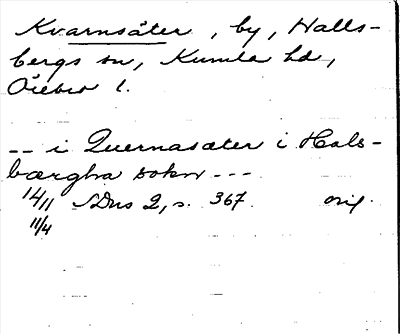 Kvarnsäter, by, Halls-
bergs sn, Kumla hd,
Örebro l.
-- i Quernasæter i Hals-
bærgha sokn ---
14/11 SDns 2, s. 367. orig.
11/4